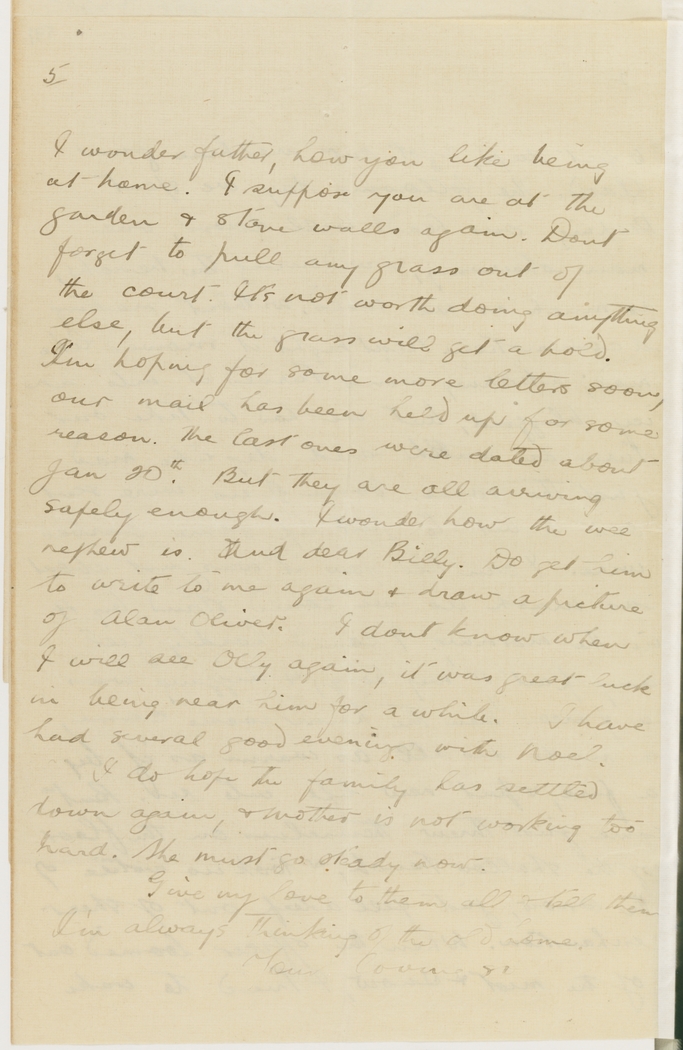 5
I wonder father, how you like being
at home. I suppose you are at the
garden & stone walls again. Dont
forget to pull any grass out of
the court. It's not worth doing anything
else, but the grass will get a hold.
I'm hoping for some more letters soon,
our mail has been held up for some
reason. The last ones were dated about
Jan 20th. But they are all arriving
safely enough. I wonder how the wee
nephew is. And dear Billy. Do get him
to write to me again & draw a picture
of Alan Oliver. I dont know when
I will see again, it was great luck
in being near him for a while. I have
had several good evenings with Noel.
I do hope the family has settled
down again, & mother is not working too
hard. She must go steady now.
Give my love to them all & tell them
I'm always thinking of the old home.
Your loving